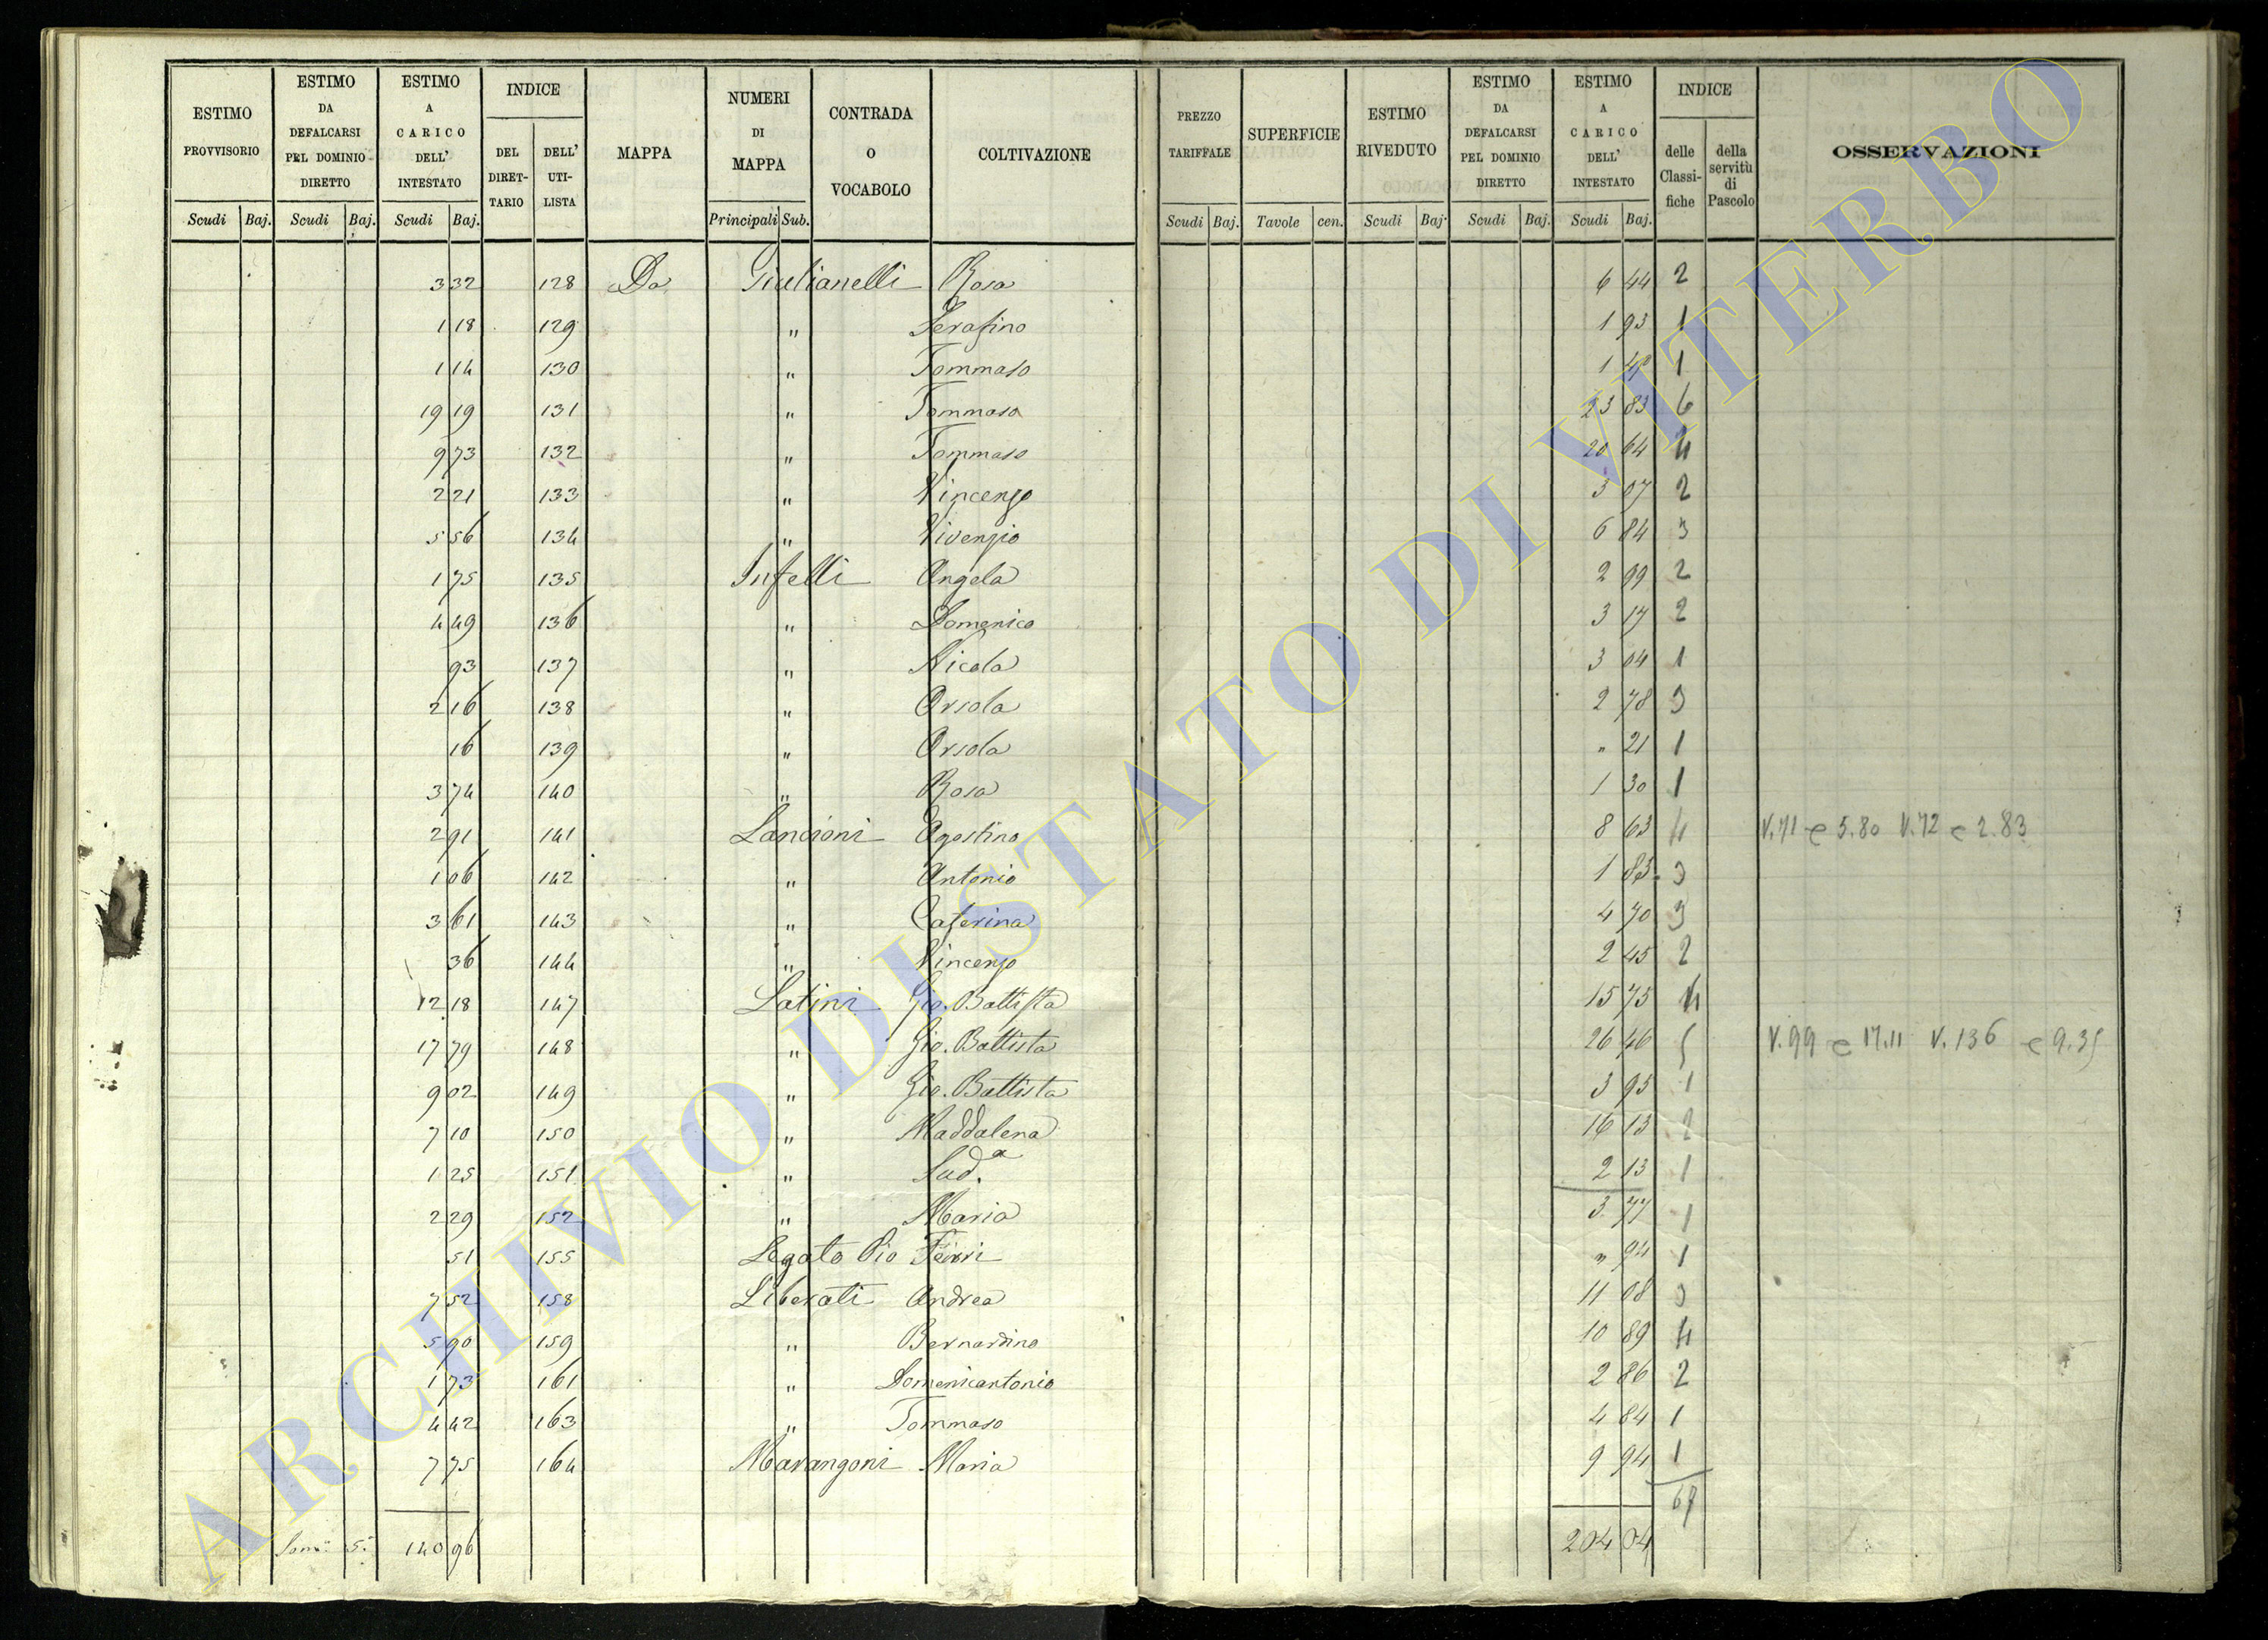 ESTIMO PROVVISORIO | ESTIMO DA DEFALCARSI PEL DOMINIO DIRETTO | ESTIMO A CARICO DELL' INTESTATO | INDICE DEL DIRET-TARIO | DELL' UTI-LISTA | MAPPA | NUMERI DI MAPPA | CONTRADA O VOCABOLO | COLTIVAZIONE | PREZZO TARIFFALE | SUPERFICIE | ESTIMO RIVEDUTO | ESTIMO DA DEFALCARSI PEL DOMINIO DIRETTO | ESTIMO A CARICO DELL' INTESTATO | INDICE delle Classi-fiche | della servitù di Pascolo | OSSERVAZIONI
Scudi Baj. Scudi Baj. Scudi Baj. Principali Sub. Scudi Baj. Tavole cen. Scudi Baj. Scudi Baj. Scudi Baj.
3 32 128 Da Giulianelli Rosa 6 44 2
1 18 129 " Serafino 1 93 1
1 14 130 " Tommaso 1 1
19 19 131 " Tommaso 23 83 6
9 73 132 " Tommaso 20 64 4
2 21 133 " Vincenzo 3 07 2
5 56 134 " Vivenzio 6 84 3
1 75 135 Infelli Angela 2 99 2
4 49 136 " Domenico 3 17 2
93 137 " Nicola 3 04 1
2 16 138 " Orsola 2 78 3
16 139 " Orsola " 21 1
3 74 140 " Rosa 1 30 1
2 91 141 Lancioni Agostino 8 63 4 V.71 e 5.80 V.72 e 2.83
1 06 142 " Antonio 1 85 3
3 61 143 " Caterina 4 70 3
36 144 " Vincenzo 2 45 2
12 18 147 Latini Gio. Battista 15 75 4
17 79 148 " Gio. Battista 26 46 5 V.99 e 17.11 V.136 e 9.35
9 02 149 " Gio. Battista 3 95 1
7 10 150 " Maddalena 16 13 2
1 25 151 " Sud.a 2 13 1
2 29 152 " Maria 3 77 1
51 155 Legato Pio Ferri " 94 1
7 52 158 Liberati Andrea 11 08 3
5 90 159 " Bernardino 10 89 4
1 73 161 " Domenicantonio 2 86 2
4 42 163 " Tommaso 4 84 1
7 75 164 Marangoni Maria 9 94 1
67
140 96 204 04
ARCHIVIO DI STATO DI VITERBO